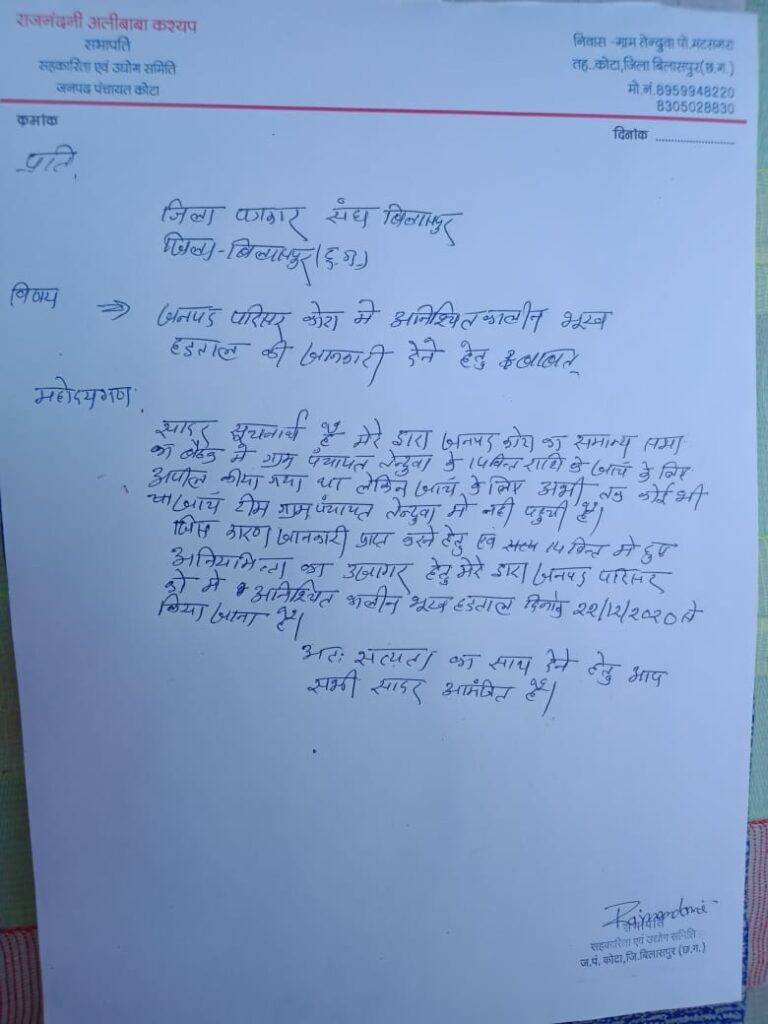 राजनंदनी अलीबाबा कश्यप
सभापति
सहकारिता एवं उद्योग समिति
जनपद पंचायत कोटा
निवास -ग्राम तेन्दुवा पो.मटसगरा
तह..कोटा,जिला बिलासपुर(छ.ग.)
मो.नं.8959948220
8305028830
क्रमांक
दिनांक ........................
प्रति,
जिला पत्रकार संघ बिलासपुर
जिला-बिलासपुर (छ.ग.)
विषय ⇒ जनपद परिसर कोटा मे अनिश्चित कालीन भूख
हडताल की जानकारी देने हेतु बाबत्
महोदयगण,
सादर सूचनार्थ है मेरे द्वारा जनपद कोटा का समान्य सभा
का बैठक मे ग्राम पंचायत तेन्दुवा के 14 वित्त राशि के जाँच के लिए
अपील कीया गया था लेकिन जाँच के लिए अभी तक कोई भी
जाँच टीम ग्राम पंचायत तेन्दुवा मे नही पहुची है।
जिस कारण जानकारी प्राप्त करने हेतु एवं 14 वित्त मे हुए
अनियामित्ता का उजागर हेतु मेरे द्वारा जनपद परिसर
को मे अनिश्चित कालीन भूख हडताल दिनांक 22/12/2020 से
किया जाना है।
अतः सत्यता का साथ देने हेतु आप
सभी सादर आमंत्रित है।
Rajnandani
सभापति
सहकारिता एवं उद्योग समिति
ज.पं. कोटा,जि.बिलासपुर (छ.ग.)